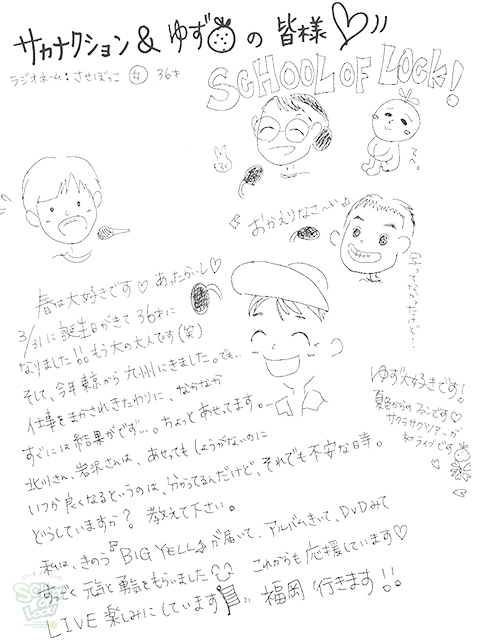 サカナクション & ゆず の 皆様
ラジオネーム:させぼっこ 女 36才
SCHOOL OF LOCK!
てへ。
おかえりなさ〜い♪
春は大好きです♡ あったかいし♡
3/31に誕生日がきて36才に
なりました!!もう大の大人です(笑)
そして、今年東京から九州にきました。でも…
仕事をまかされきたわりに、なかなか
すぐには結果がでず…。ちょっとあせってます。
北川さん、岩沢さんは、あせってもしょうがないのに
いつか良くなるというのは、分かってるんだけど、それでも不安な日等。
どうしていますか? 教えて下さい。
ゆず大好きです!
夏色からのファンです♡
サクラサクツアーが
初ライブです
私は、きのう『BIG YELL』が届いて、アルバムきいて、DVDみて
すっごく元気と勇気をもらいました これからも応援しています♡
LIVE楽しみにしています 福岡 行きます!!